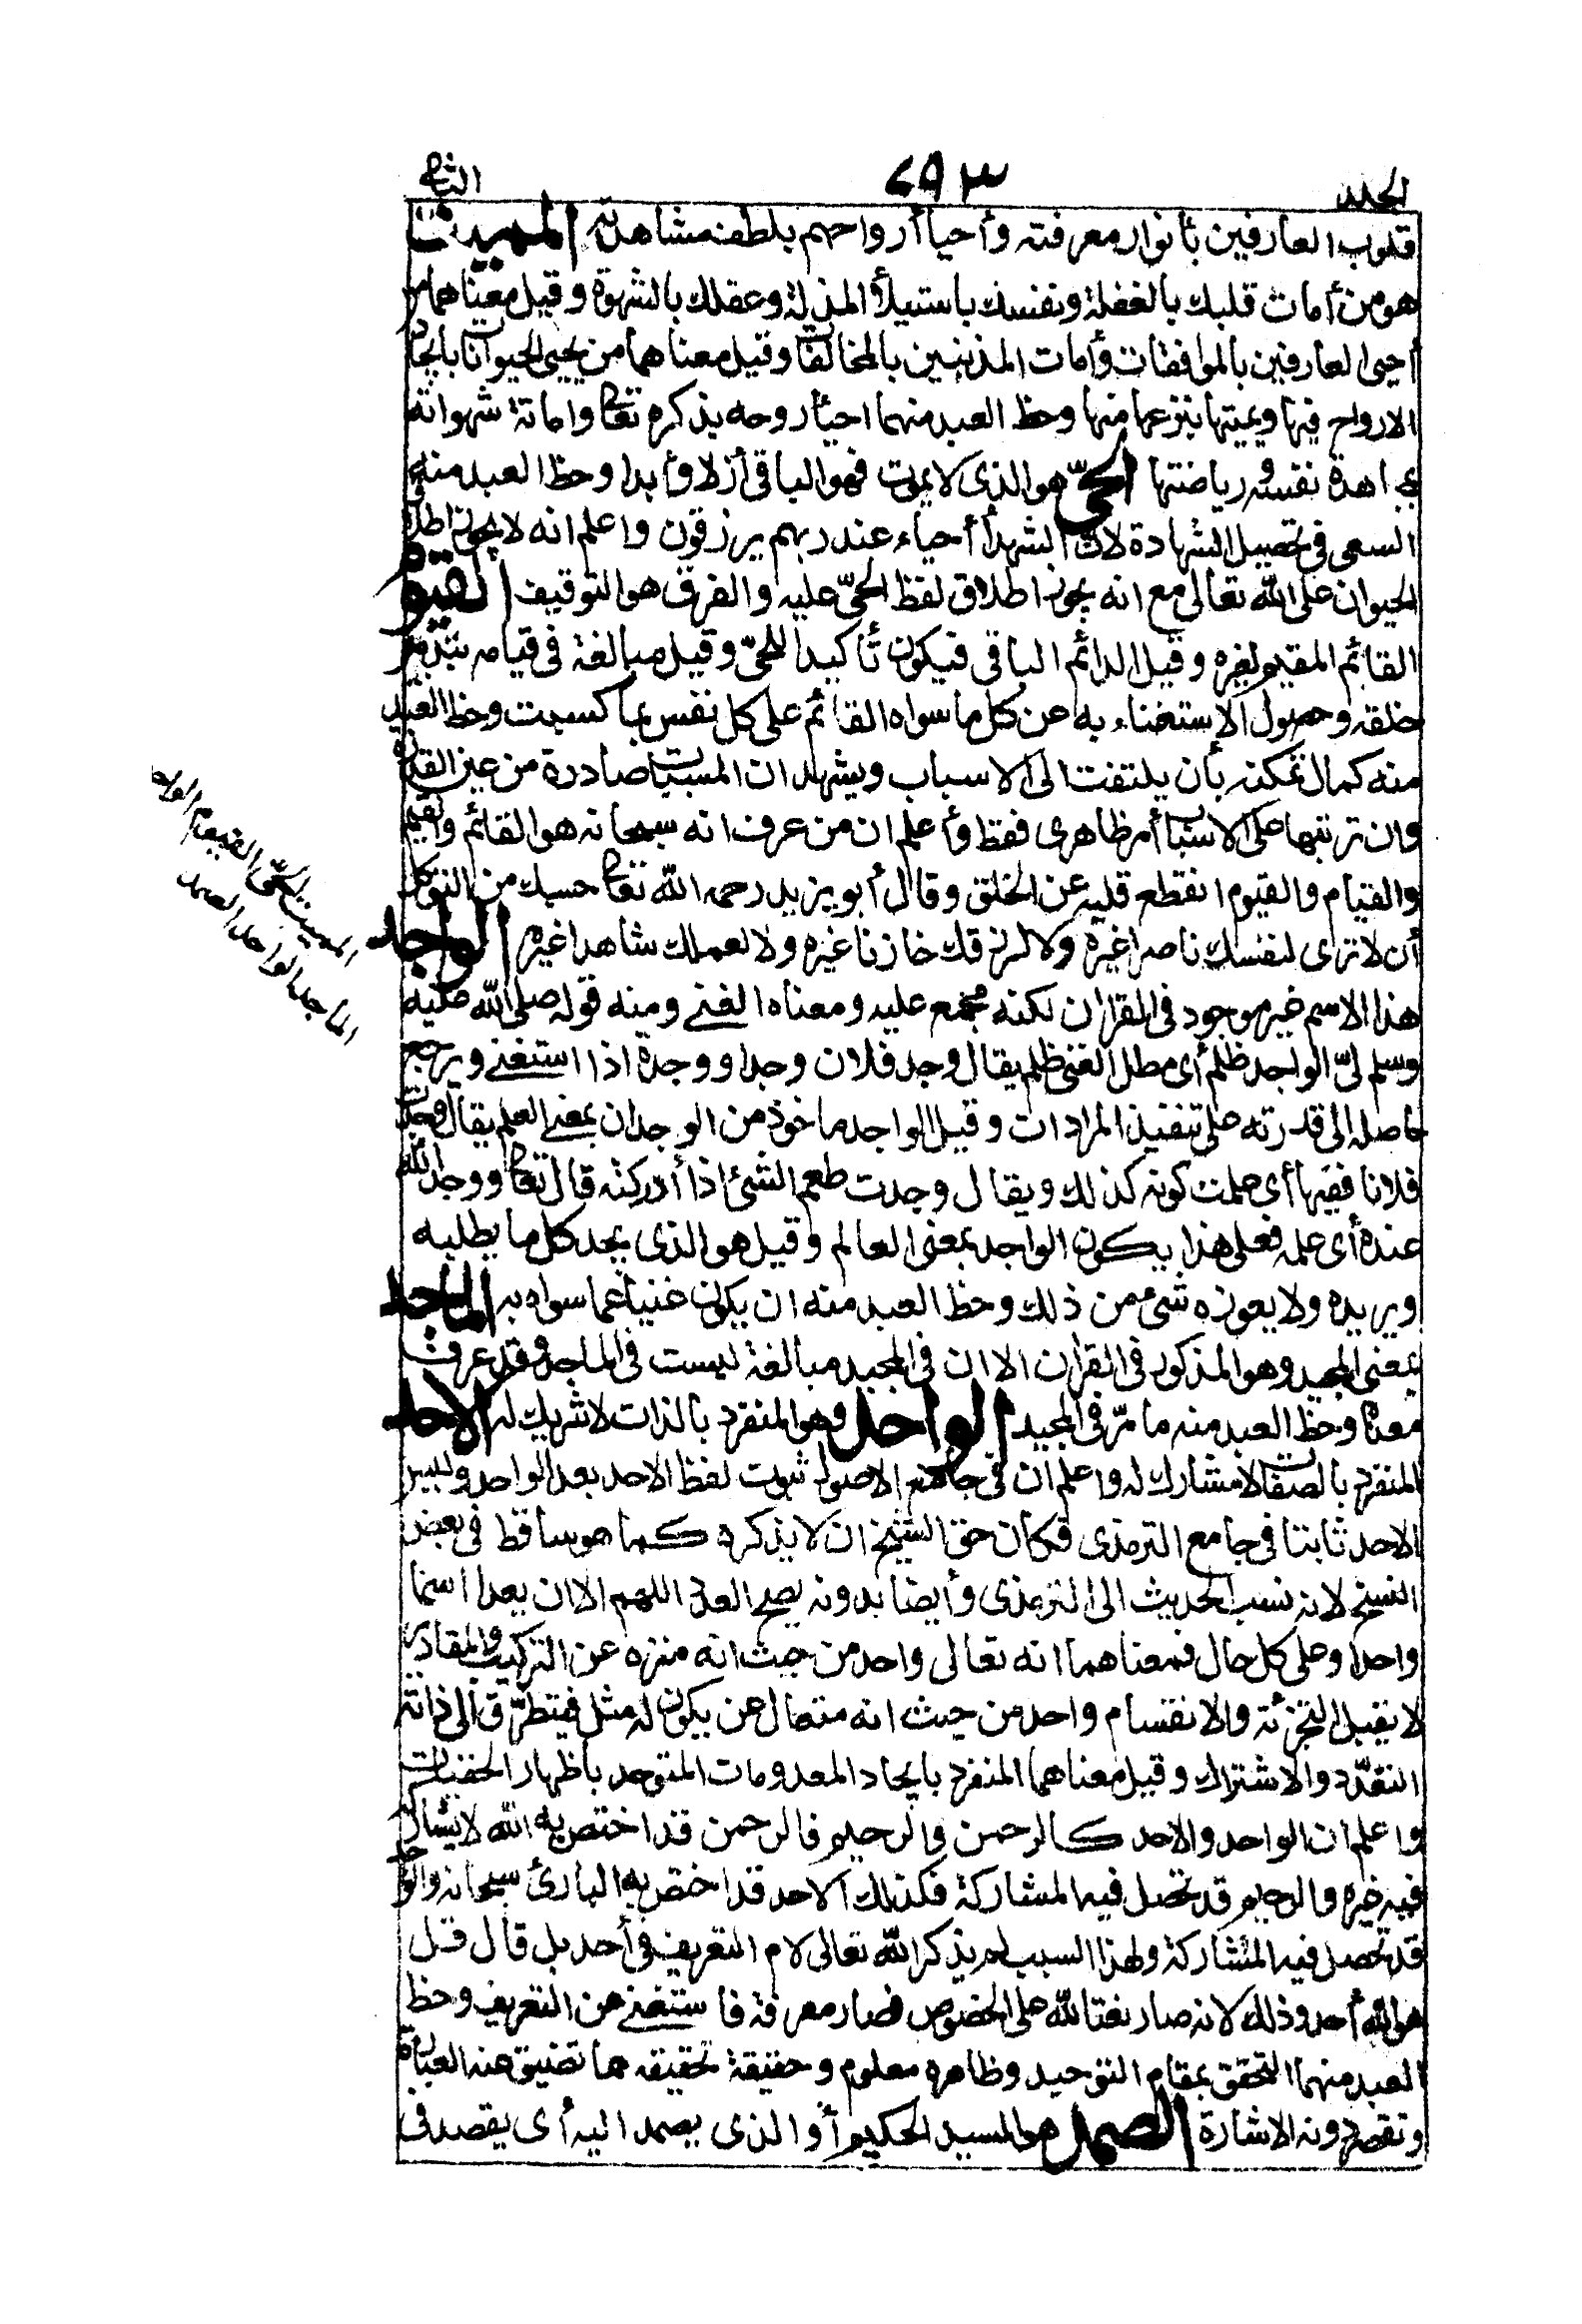 المجلد ٢٩٣ الثاني
قلوب العارفين بأنوار معرفته وأحيا أرواحهم بلطف مشاهدته المميت
هو من أمات قلبك بالغفلة ونفسك باستيلأ المذلة وعقلك بالشهوة وقيل معناهما من
أحيى العارفين بالموافقات وأمات المذنبين بالمخالفات وقيل معناهما من يحيى الحيوانات بايجاد
الارواح فيها ويميتها بنزعها منها وحظ العبد منهما احيأ روحه بذكره تعالى واماتة شهواته
بمجاهدة نفسه ورياضتها الحيّ هو الذى لايموت فهو الباقى أزلا وأبدا وحظ العبد منه
السعى فى تحصيل الشهادة لان الشهدأ أحياء عند ربهم يرزقون واعلم انه لا يجوز اطلاق
الحيوان على الله تعالى مع انه يجوز اطلاق لفظ الحىّ عليه والفرق هو التوقيف القيوم
القائم المقيم لغيره وقيل الدائم الباقى فيكون تأكيدا للحىّ وقيل مبالغة فى قيامه بتدبير
خلقه وحصول الاستغناء به عن كل ما سواه القائم على كل نفس بما كسبت وحظ العبد
منه كمال تمكنه بأن يلتفت الى الاسباب ويشهد ان المسببات صادرة من عين القدرة
وان ترتبها على الاسباب أمر ظاهرى فقط وأعلم ان من عرف انه سبحانه هو القائم والقيم
والقيام والقيوم انقطع قلبه عن الخلق وقال أبو يزيد رحمه الله تعالى حسبك من التوكل
أن لا ترى لنفسك ناصرا غيره ولا لرزقك خازنا غيره ولا لعملك شاهدا غيره الواجد
هذا الاسم غير موجود فى القرآن لكنه مجمع عليه ومعناه الغنى ومنه قوله صلى الله عليه
وسلم لىّ الواجد ظلم أى مطل الغنى ظلم يقال وجد فلان وجدا ووجدة اذا استغنى ويرجع
حاصله الى قدرته على تنفيذ المرادات وقيل الواجد ماخوذ من الوجدان بمعنى العلم يقال وجدت
فلانا فقيها أى علمت كونه كذلك ويقال وجدت طعم الشئ اذا أدركته قال تعالى ووجد الله
عنده أى علمه فعلى هذا يكون الواجد بمعنى العالم وقيل هو الذى يجد كل ما يطلبه
ويريده ولا يعوزه شئ من ذلك وحظ العبد منه ان يكون غنيا عما سواه به الماجد
بمعنى المجيد وهو المذكور فى القرآن الا ان فى المجيد مبالغة ليست فى الماجد وقد عرفت
معناه وحظ العبد منه ما مرّ فى المجيد الواحد وهو المنفرد بالذات لا شريك له الاحد
المنفرد بالصفات لا مشارك له واعلم ان فى جامع الاصول ثبوت لفظ الاحد بعد الواحد وليس
الاحد ثابتا فى جامع الترمذى فكان حق الشيخ ان لا يذكره كما هو ساقط فى بعض
النسخ لانه نسب الحديث الى الترمذى وأيضا بدونه يصح العدد اللهم الا ان يعدا اسما
واحدا وعلى كل حال فمعناهما انه تعالى واحد من حيث انه منزه عن التركيب والمقادير
لا يقبل التجزئة والانقسام واحد من حيث انه متعال عن يكون له مثل فيتطرّق الى ذاته
التعدّد والاشتراك وقيل معناهما المنفرد بايجاد المعدومات المتوحد باظهار الخفيات
واعلم ان الواحد والاحد كالرحمن والرحيم فالرحمن قد اختص به الله لا يشاركه
فيه غيره والرحيم قد تحصل فيه المشاركة فكذلك الاحد قد اختص به البارئ سبحانه والواحد
قد تحصل فيه المشاركة ولهذا السبب لم يذكر الله تعالى لام التعريف فى أحد بل قال قل
هو الله أحد وذلك لانه صار نعتا لله على الخصوص فصار معرفة فاستغنى عن التعريف وحظ
العبد منهما التحقق بمقام التوحيد وظاهره معلوم وحقيقة تحقيقه مما تضيق عنه العبارة
وتقصر دونه الاشارة الصمد هو السيد الحكيم أو الذى يصمد اليه أى يقصد فى
المميت الحىّ القيوم الواجد
الماجد الواحد الصمد